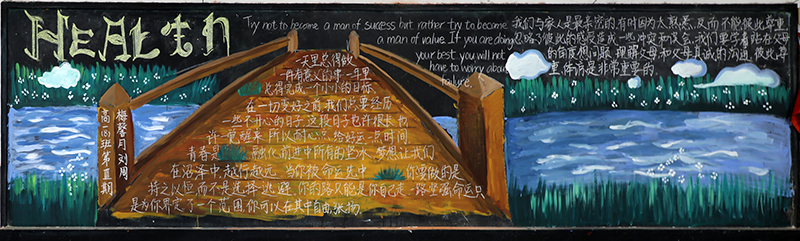 HEALTH
Try not to become a man of success but rather try to become
a man of value. If you are doing
your best, you will not
have to worry about
failure.
我们与家人是最亲密的,有时因为太熟悉,反而不能彼此尊重
忽略了彼此的感受,造成一些冲突和误会,我们要学着站在父母
的角度想问题,理解父母和父母真诚的沟通,彼此尊
重、体谅是非常重要的
一天里总得做
一件有意义的事一年里
总得完成一个小小的目标
在一切变好之前我们总要经历
一些不开心的日子,这段日子也许很长也
许一觉醒来,所以耐心点,给好运一点时间
青春是 融化前进中所有的坚冰,梦想让我们
在沼泽中越行越远,当你被命运选中 你要做的是
持之以恒而不是选择逃避,你的路只能是你自己走一路坚强命运只
是为你界定了一个范围,你可以在其中自由张扬
高 班第五期
梅馨月 刘周